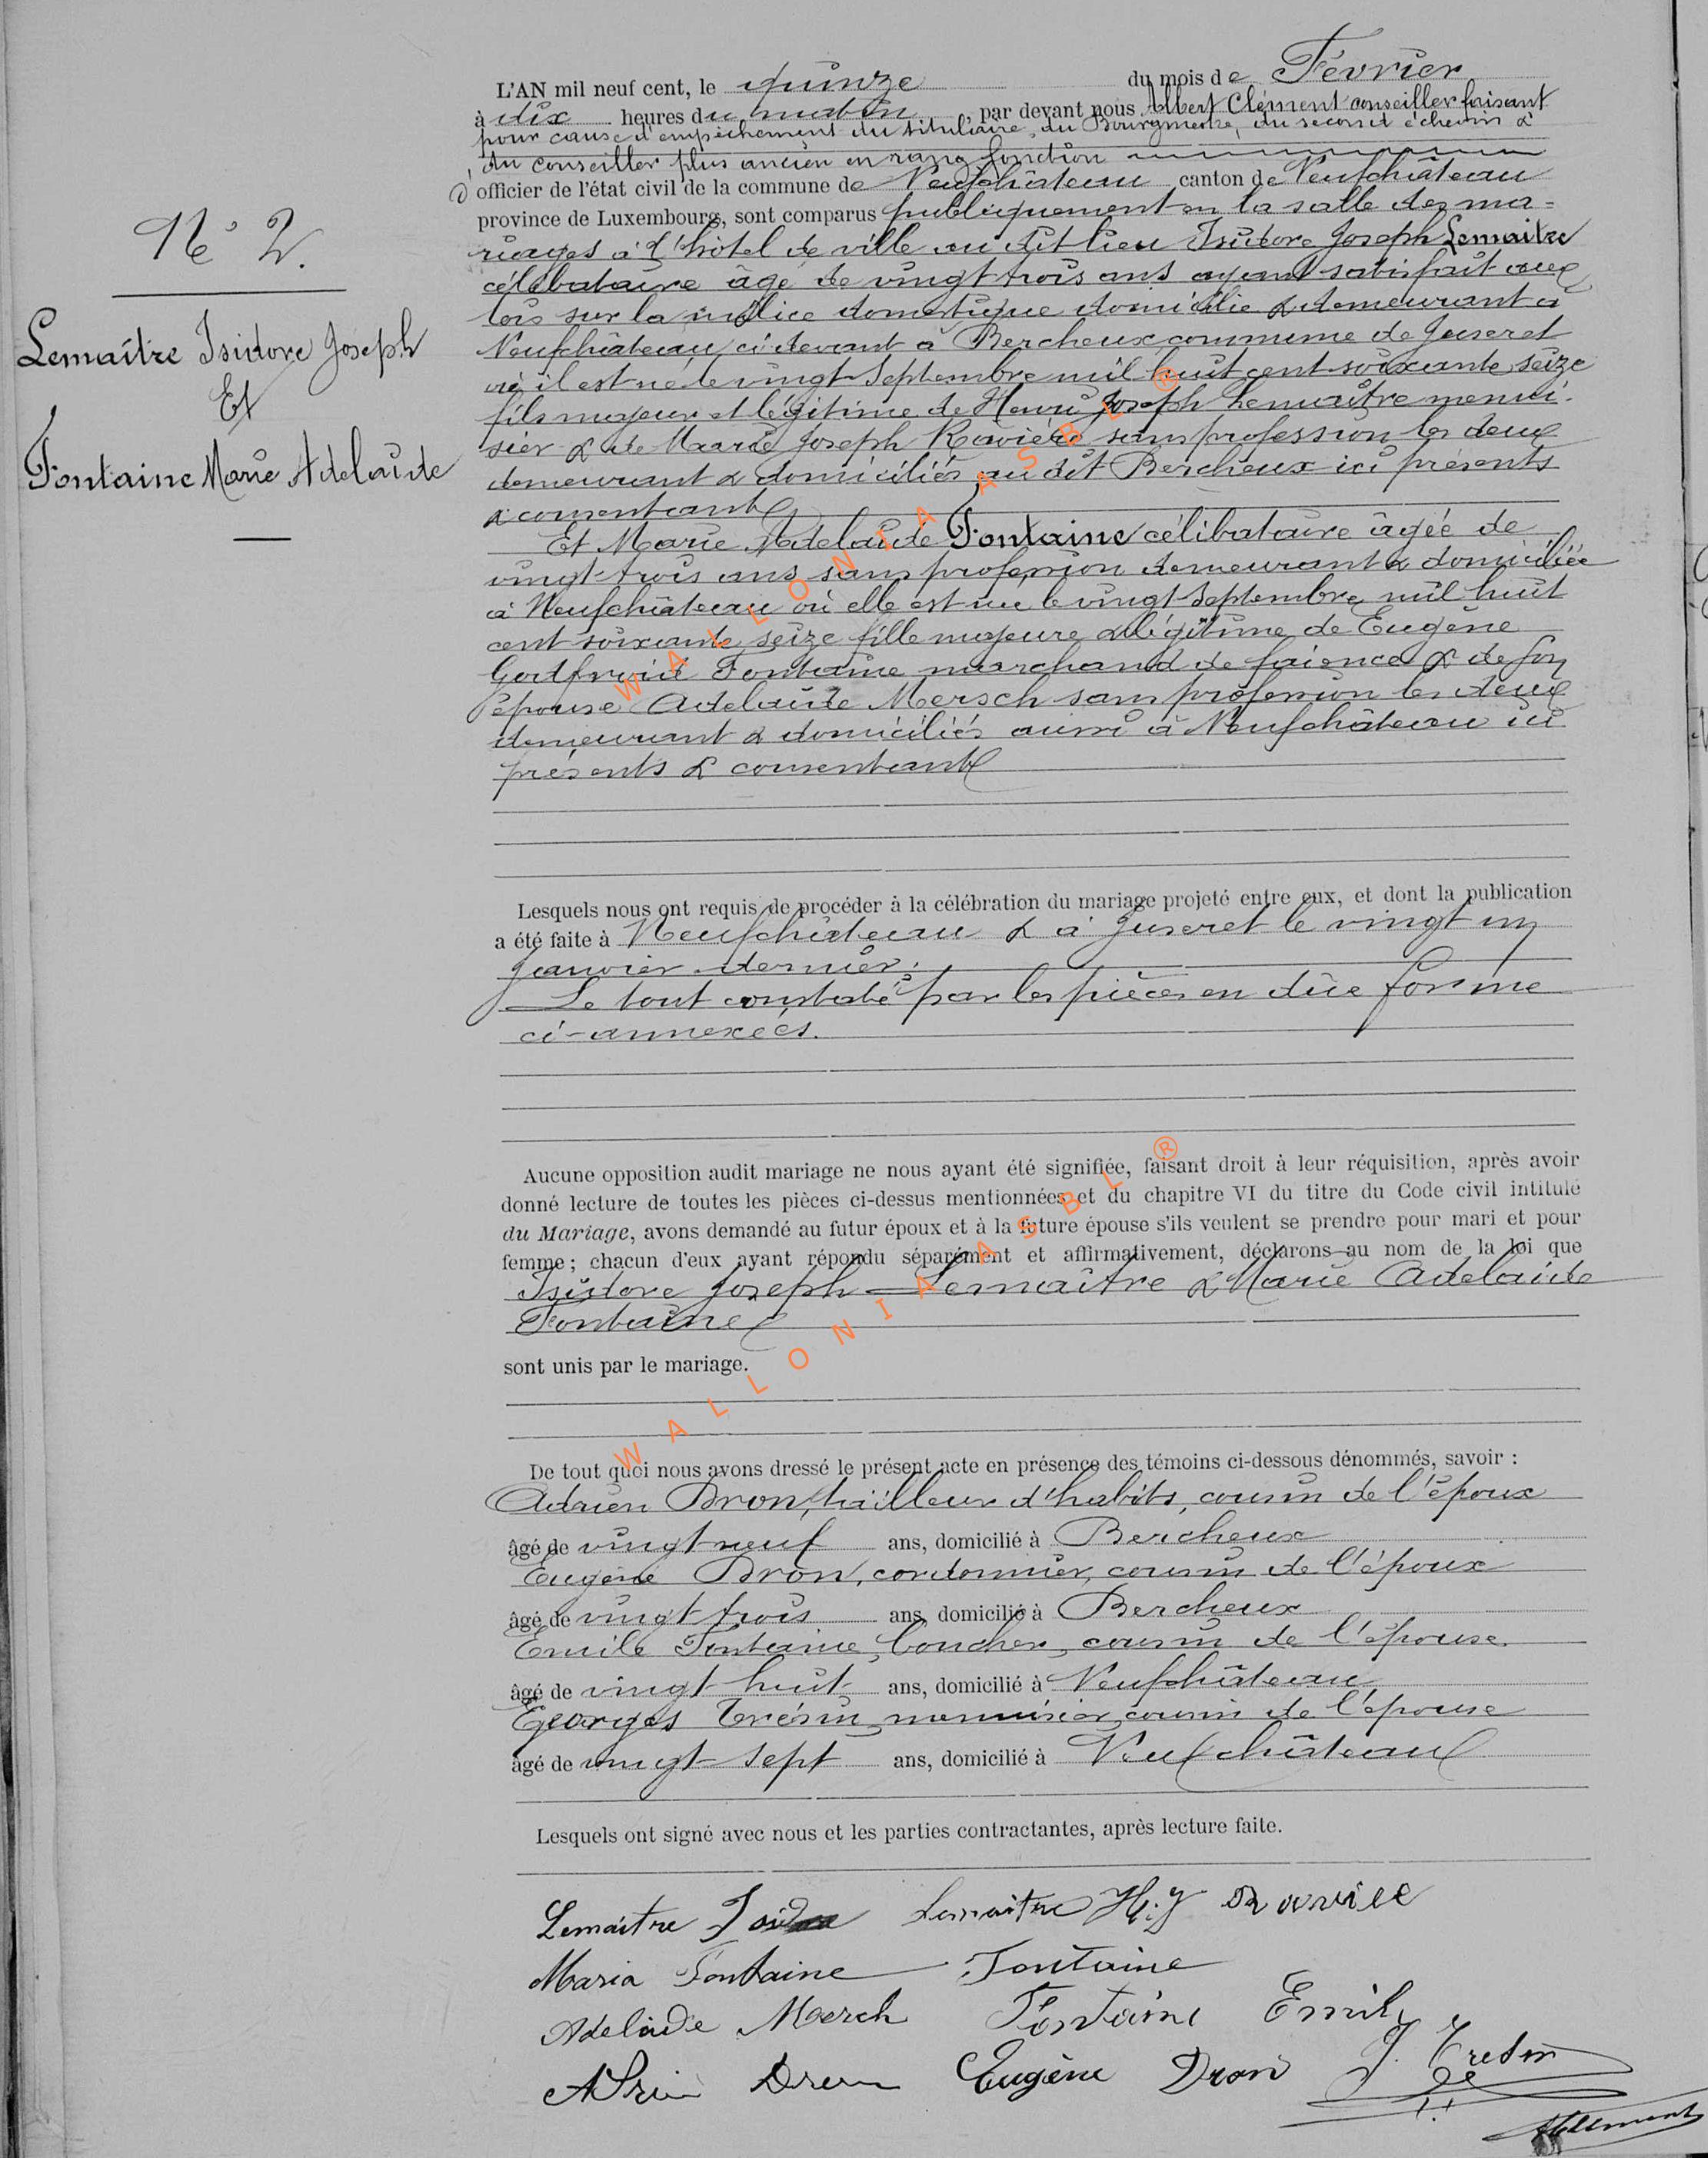 N° 2.
Lemaître Isidore Joseph
Et
Fontaine Marie Adelaïde
L'AN mil neuf cent, le quinze du mois de Février
à dix heures du matin, par devant nous Albert Clément conseiller faisant
pour cause d'empêchement du titulaire, du Bourgmestre, du second échevin &
du conseiller plus ancien en rang fonction
d'officier de l'état civil de la commune de Neufchâteau canton de Neufchâteau
province de Luxembourg, sont comparus publiquement en la salle des ma=
riages à l'hôtel de ville au dit lieu Isidore Joseph Lemaitre
célibataire âgé de vingt trois ans ayant satisfait aux
lois sur la milice domestique domicilié & demeurant à
Neufchâteau ci devant à Bercheux commune de Juseret
où il est né le vingt Septembre mil huit cent soixante seize
fils majeur et légitime de Henri Joseph Lemaitre menui-
sier & de Marie Joseph Rowière sans profession les deux
demeurant & domiciliés au dit Bercheux ici présents
& consentants
Et Marie Adelaïde Fontaine célibataire âgée de
vingt-trois ans sans profession demeurant & domiciliée
à Neufchâteau où elle est née le vingt Septembre mil huit
cent soixante seize fille majeure & légitime de Eugène
Godfroid Fontaine marchand de faience & de son
épouse Adelaïde Mersch sans profession les deux
demeurant & domiciliés aussi à Neufchâteau ici
présents & consentants
Lesquels nous ont requis de procéder à la célébration du mariage projeté entre eux, et dont la publication
a été faite à Neufchâteau & à Juseret le vingt un
Janvier dernier.
Le tout constaté par les pièces en due forme
ci-annexées.
Aucune opposition audit mariage ne nous ayant été signifiée, faisant droit à leur réquisition, après avoir
donné lecture de toutes les pièces ci-dessus mentionnées et du chapitre VI du titre du Code civil intitulé
du Mariage, avons demandé au futur époux et à la future épouse s'ils veulent se prendre pour mari et pour
femme; chacun d'eux ayant répondu séparément et affirmativement, déclarons au nom de la loi que
Isidore Joseph Lemaître & Marie Adelaide
Fontaine
sont unis par le mariage.
De tout quoi nous avons dressé le présent acte en présence des témoins ci-dessous dénommés, savoir :
Adrien Dron, tailleur d'habits, cousin de l'époux
âgé de vingt neuf ans, domicilié à Bercheux
Eugène Dron, cordonnier, cousin de l'époux
âgé de vingt trois ans, domicilié à Bercheux
Emile Fontaine, boucher, cousin de l'épouse.
âgé de vingt huit ans, domicilié à Neufchâteau
Georges Trésin, menuisier, cousin de l'épouse
âgé de vingt-sept ans, domicilié à Neufchâteau
Lesquels ont signé avec nous et les parties contractantes, après lecture faite.
Lemaitre Lemaitre H.J
Maria Fontaine Fontaine
Adelaide Merch Fontaine Emile
Eugène Dron
AClément
WALLONIA ASBL ®
WALLONIA ASBL ®